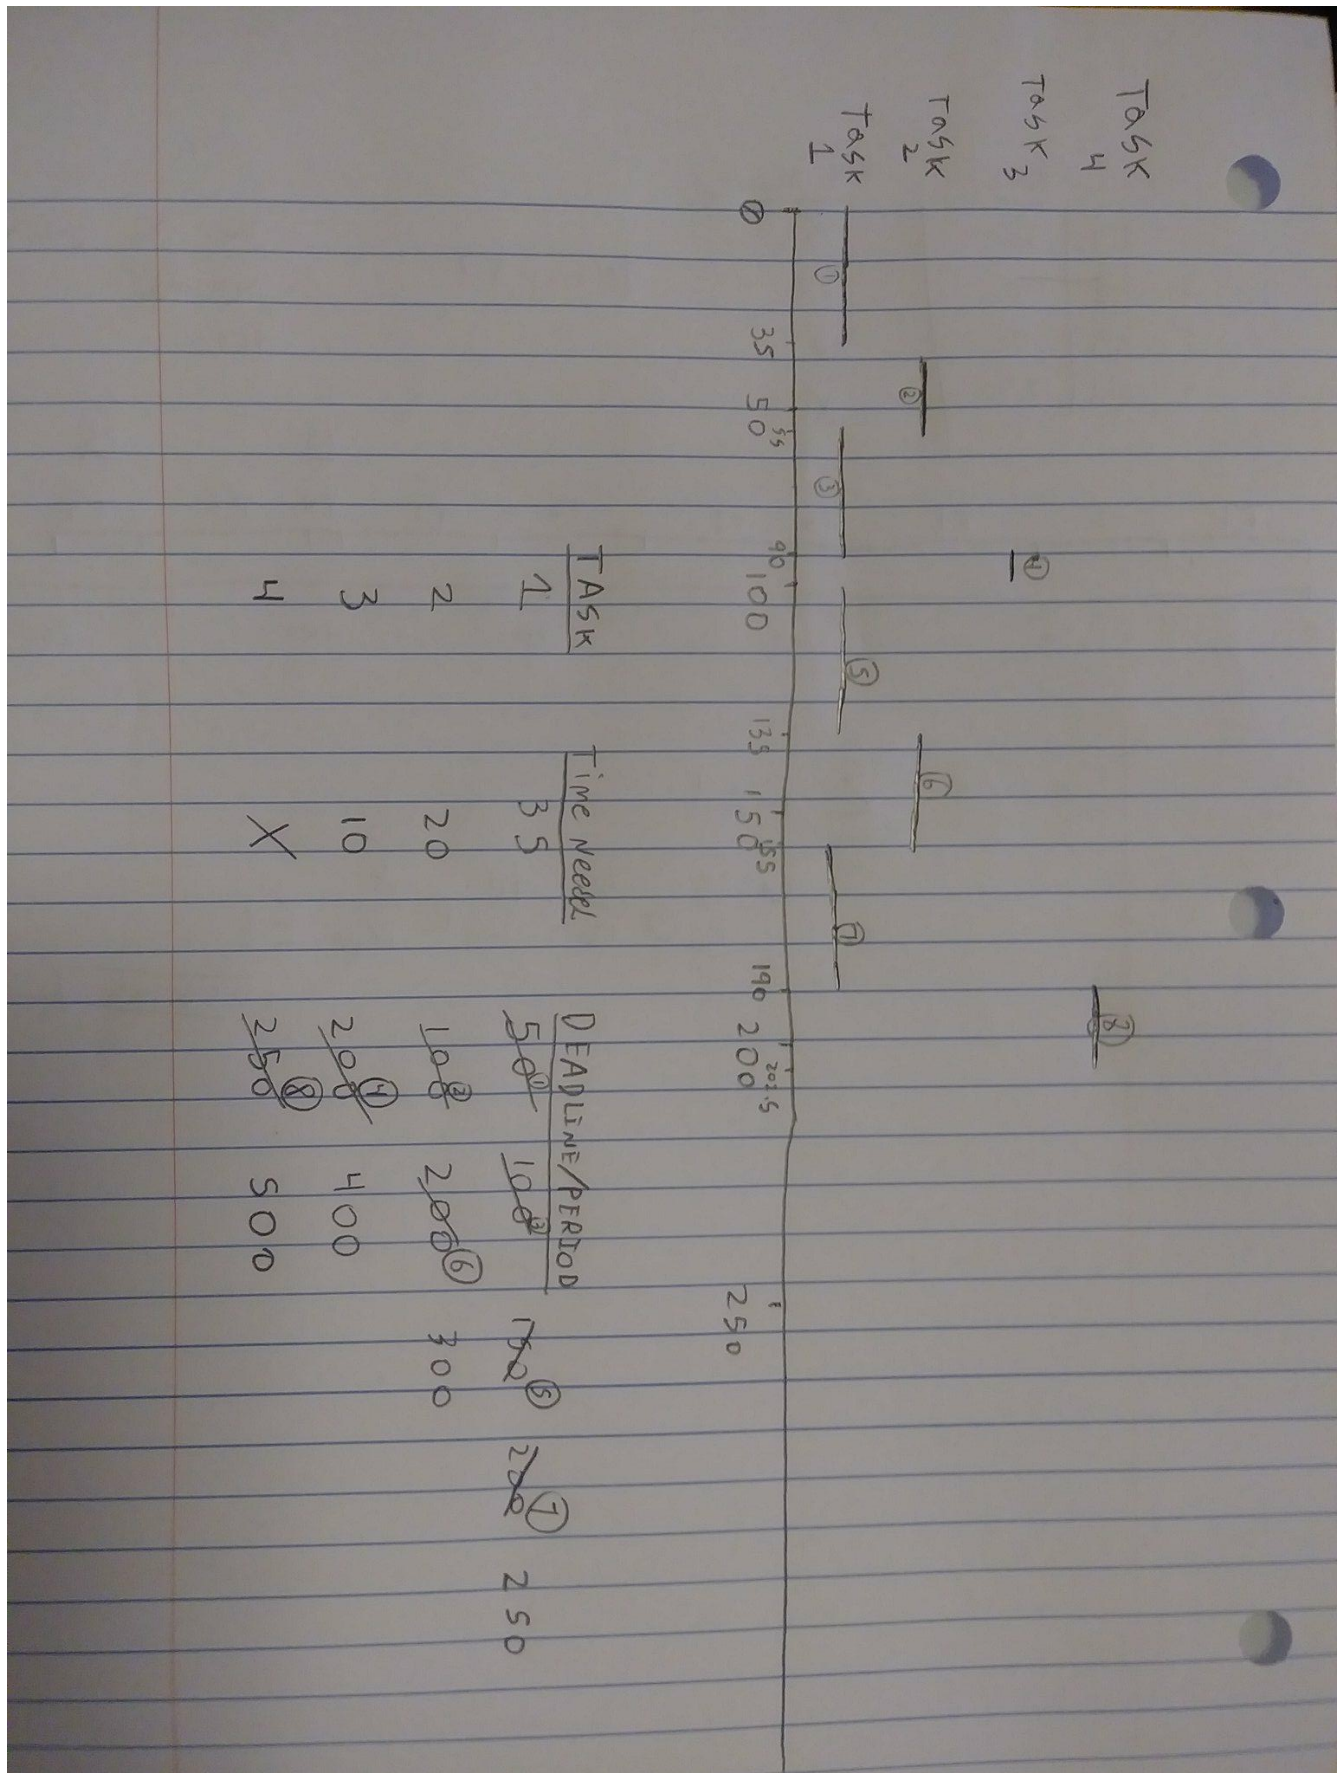 Task 4
Task 3
Task 2
Task 1
④
⑧
② ⑥
① ③ ⑤ ⑦
0 35 50 55 90 100 135 150 155 190 200 202.5 250
TASK Time Needed DEADLINE/PERIOD
1 35 50 ① 100 ③ 150 ⑤ 200 ⑦ 250
2 20 100 ② 200 ⑥ 300
3 10 200 ④ 400
4 X 250 ⑧ 500